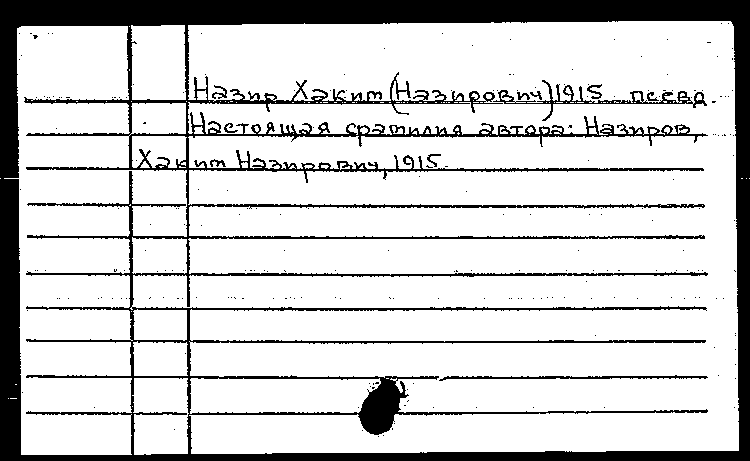 Назир Хаким (Назирович) 1915 псевд.
Настоящая фамилия автора: Назиров,
Хаким Назирович, 1915.